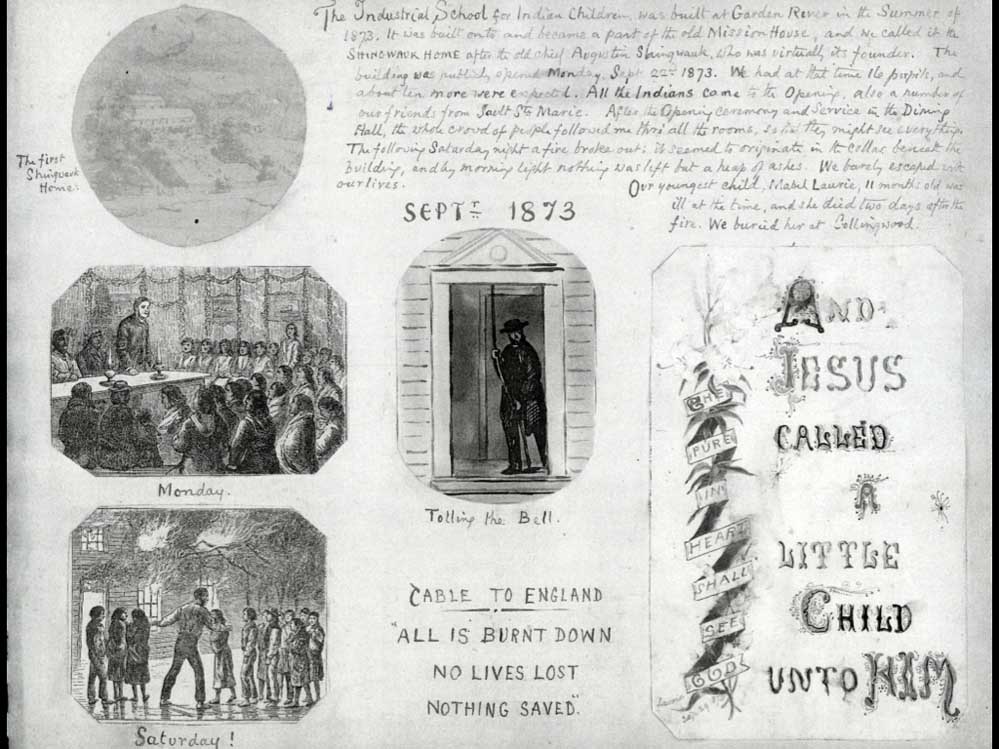 The Industrial School for Indian Children, was built at Garden River in the Summer of
1873. It was built onto and became a part of the old Mission House, and we called it the
SHINGWAUK HOME after the old chief Augustin Shingwauk, who was virtually its founder. The
building was publicly opened Monday, Sept 22nd 1873. We had at that time 16 pupils, and
about ten more were expected. All the Indians came to the Opening, also a number of
our friends from Sault Ste Marie. After the Opening ceremony and Service in the Dining
Hall, the whole crowd of people followed me thro' all the rooms, so that they might see everything.
The following Saturday night a fire broke out: it seemed to originate in the cellar beneath the
building, and by morning light nothing was left but a heap of ashes. We barely escaped with
our lives. Our youngest child, Mabel Laurie, 11 months old was
ill at the time, and she died two days after the
fire. We buried her at Collingwood.
The first
Shingwauk
Home.
SEPTR 1873
Monday.
Tolling the Bell.
Saturday!
CABLE TO ENGLAND
"ALL IS BURNT DOWN
NO LIVES LOST
NOTHING SAVED."
THE
PURE
IN
HEART
SHALL
SEE
GOD
AND
JESUS
CALLED
A
LITTLE
CHILD
UNTO HIM